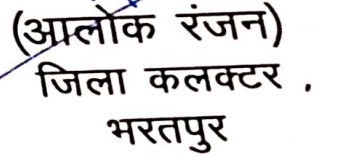 (आलोक रंजन)
जिला कलक्टर .
भरतपुर